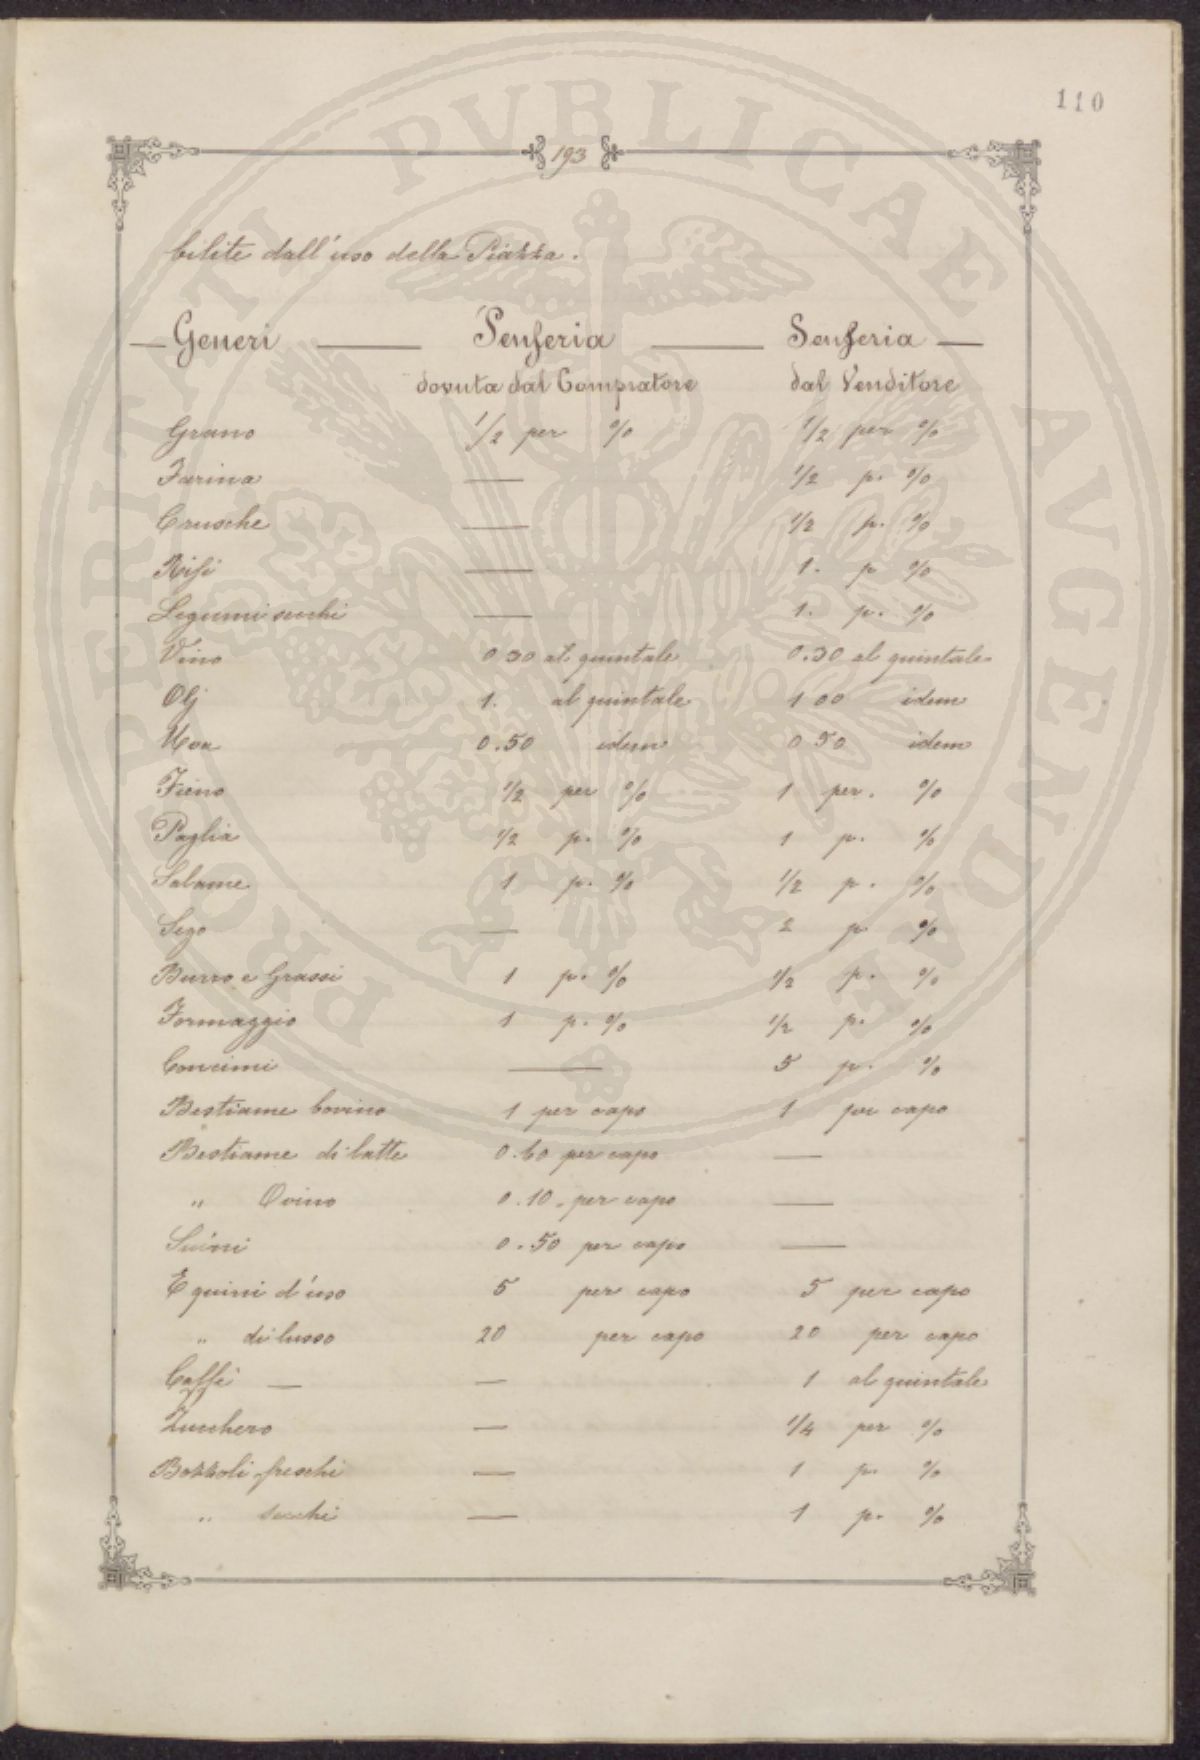 110
193
bilite dall'uso della Piazza.
Generi — Senseria — Senseria —
dovuta dal Compratore dal Venditore
Grano 1/2 per % 1/2 per %
Farina — 1/2 p. %
Crusche — 1/2 p. %
Risi — 1. p %
Legumi secchi — 1. p. %
Vino 0.30 al quintale 0.30 al quintale
Olj 1. al quintale 1 00 idem
Uva 0.50 idem 0 50 idem
Fieno 1/2 per % 1 per. %
Paglia 1/2 p. % 1 p. %
Salame 1 p. % 1/2 p. %
Sego — 2 p %
Burro e Grassi 1 p. % 1/2 p. %
Formaggio 1 p. % 1/2 p. %
Concimi — 5 p. %
Bestiame bovino 1 per capo 1 per capo
Bestiame di latte 0.60 per capo —
" Ovino 0.10. per capo —
Suini 0.50 per capo —
Equini d'uso 5 per capo 5 per capo
" di lusso 20 per capo 20 per capo
Caffè — — 1 al quintale
Zucchero — 1/4 per %
Bozzoli freschi — 1 p. %
" secchi — 1 p. %
PROSPERITATI PVBLICAE AVGENDAE